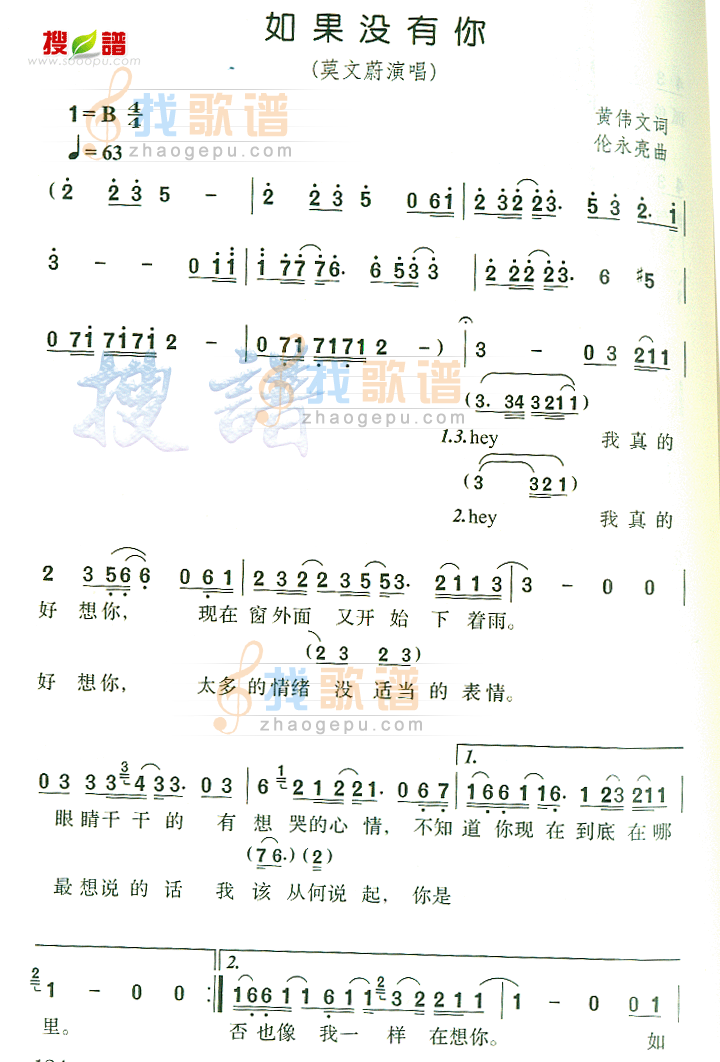 如果没有你
搜谱
www.sooopu.com
(莫文蔚演唱)
1=B 4/4
♩=63
黄伟文词
伦永亮曲
找歌谱
zhaogepu.com
(2 2 3 5 - | 2 2 3 5 0 6 1 | 2 3 2 2 2 3. 5 3 2. 1 |
3 - - 0 1 1 | 1 7 7 7 6. 6 5 3 3 | 2 2 2 2 2 3. 6 #5 |
0 7 1 7 1 7 1 2 - | 0 7 1 7 1 7 1 2 -) | 3 - 0 3 2 1 1 |
搜谱
找歌谱
zhaogepu.com
(3. 3 4 3 2 1 1)
1.3.hey 我真的
(3 3 2 1)
2.hey 我真的
2 3 5 6 6 0 6 1 | 2 3 2 2 3 5 5 3. 2 1 1 3 | 3 - 0 0 |
好想你, 现在窗外面又开始下着雨。
(2 3 2 3)
好想你, 太多的情绪没适当的表情。
找歌谱
zhaogepu.com
1.
0 3 3 3 3 4 3 3. 0 3 | 6 1 2 1 2 2 1. 0 6 7 | 1 6 6 1 1 6. 1 2 3 2 1 1 |
眼睛干干的有想哭的心情,不知道你现在到底在哪
(7 6.) (2)
最想说的话我该从何说起,你是
2.
2 1 - 0 0 :‖ 1 6 6 1 1 6 1 2 3 2 2 1 1 1 | 1 - 0 0 1 |
里。 否也像我一样在想你。 如